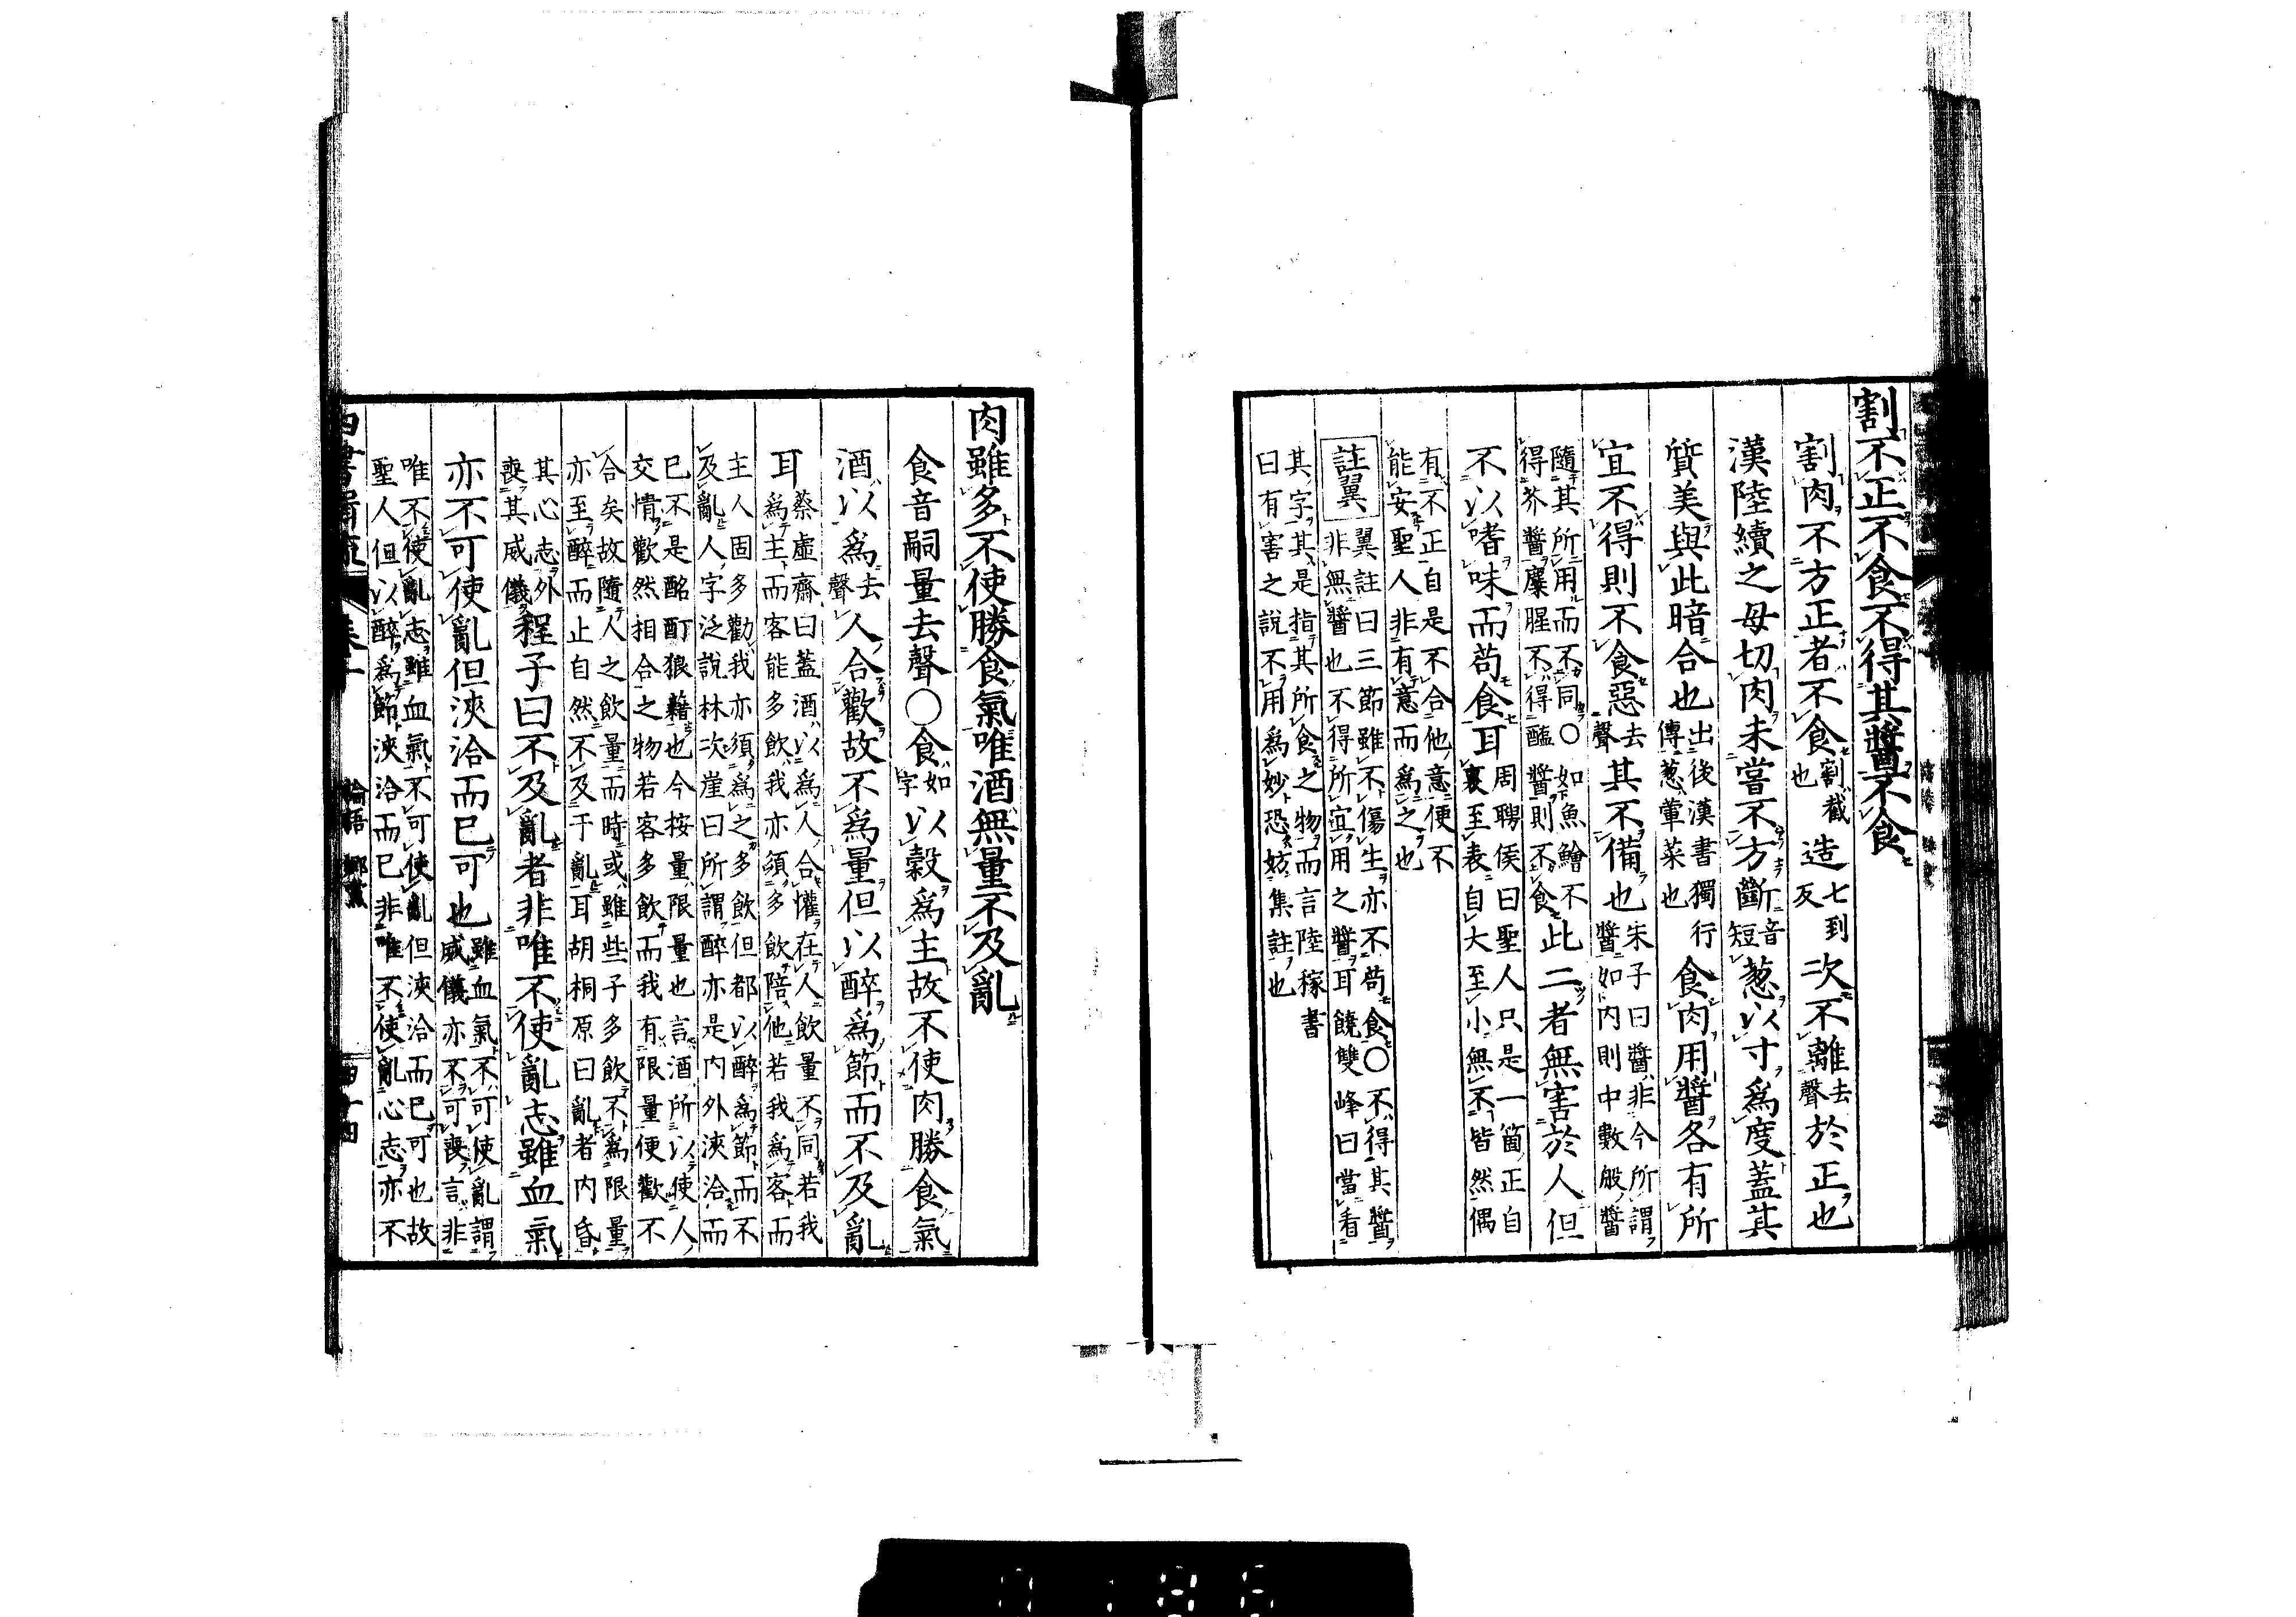 割不正不食不得其醬不食
割肉不方正者不食
割截
也
造
七到
反
次不離
去
聲
於正也
漢陸續之母切肉未嘗不方斷
音
短
葱以寸爲度蓋其
質美與此暗合也
出後漢書獨行
傳葱葷菜也
食肉用醬各有所
宜不得則不食惡
去
聲
其不備也
朱子曰醬非今所謂
醬如內則中數般醬
隨其所用而不同○如魚鱠不
得芥醬麋腥不得醢醬則不食
此二者無害於人但
不以嗜味而苟食耳
周聘侯曰聖人只是一箇正自
裏至表自大至小無不皆然偶
有不正自是不合他意便不
能安聖人非有意而爲之也
註翼
翼註曰三節雖不傷生亦不苟食○不得其醬
非無醬也不得所宜用之醬耳饒雙峰曰當看
其字其是指其所食之物而言陸稼書
曰有害之說不用爲妙恐妨集註也
肉雖多不使勝食氣唯酒無量不及亂
食音嗣量去聲○食
如
字
以穀爲主故不使肉勝食氣
酒以爲
去
聲
人合歡故不爲量但以醉爲節而不及亂
耳
蔡虛齋曰蓋酒以爲人合懽在人飲量不同若我
爲主而客能多飲我亦須多飲陪他若我爲客而
主人固多勸我亦須爲之多飲但都以醉爲節而不
及亂人字泛說林次崖曰所謂醉亦是內外浹洽而
已不是酩酊狼藉也今按量限量也言酒所以使人
交情歡然相合之物若客多飲而我有限量便歡不
合矣故隨人之飲量而時或雖些子多飲不爲限量
亦至醉而止自然不及于亂耳胡桐原曰亂者內昏
其心志外
喪其威儀
程子曰不及亂者非唯不使亂志雖血氣
亦不可使亂但浹洽而已可也
雖血氣不可使亂謂
威儀亦不可喪言非
唯不使亂志雖血氣不可使亂但浹洽而已可也故
聖人但以醉爲節浹洽而已非唯不使亂心志亦不
論語 鄉黨